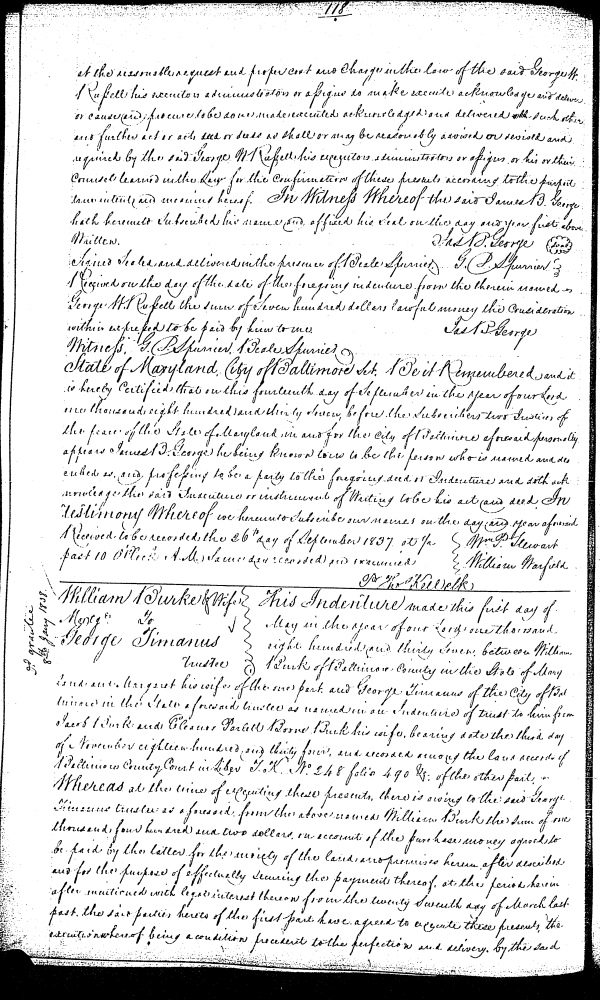 118
at the reasonable request and proper cost and Charge in the law of the said George W.
Russell his executors administrators or assigns to make execute acknowledge and deliver
or cause and procure to be done made executed acknowledged and delivered all such other
and further act or acts deed or deeds as shall or may be reasonably advised or devised and
required by the said George W. Russell his executors administrators or assigns, or his or their
Counsel learned in the Law for the confirmation of these presents according to the purport
true intent and meaning hereof. In Witness Whereof the said James B. George
hath hereunto Subscribed his name and affixed his Seal on the day and year first above
Written. Jas B. George (Seal)
Signed Sealed and delivered in the presence of Beale Spurrier, G. P. Spurrier
Received on the day of the date of the foregoing indenture from the therein named
George W. Russell the sum of Seven hundred dollars lawful money the Consideration
within expressed to be paid by him to me Jas B. George
Witness, G. P. Spurrier, Beale Spurrier
State of Maryland, City of Baltimore Sct. Be it Remembered, and it
is hereby Certified that on this fourteenth day of September in the year of our Lord
one thousand eight hundred and thirty Seven, before the Subscribers two Justices of
the peace of the State of Maryland, in and for the City of Baltimore aforesaid personally
appears James B. George he being known to us to be the person who is named and des
cribed as, and professing to be a party to the foregoing deed or Indenture and doth ack
nowledge the said Indenture or instrument of Writing to be his act and deed. In
Testimony Whereof we hereunto Subscribe our names on the day and year aforesaid
Received to be recorded the 26th day of September 1837 at ½ Wm P. Stewart
past 10 O'Clock A.M. Same day recorded and examined William Warfield
Pr Tho Kell Clk
William Burke & Wife This Indenture made this first day of
Mortge To May in the year of our Lord one thousand
George Timanus eight hundred and thirty Seven, between William
trustee Burk of Baltimore County in the State of Mary
land and Margaret his wife of the one part, and George Timanus of the City of Bal
timore in the State aforesaid trustee as named in an Indenture of trust to him from
Jacob Burk and Eleanor Boone Burk his wife, bearing date the third day
of November eighteen hundred, and thirty four, and recorded among the land records of
Baltimore County Court in Liber T.K. No 248 folio 490 &c. of the other part,
Whereas at the time of executing these presents, there is owing to the said George
Timanus trustee as aforesaid, from the above named William Burk the sum of one
thousand four hundred and two dollars, on account of the purchase money agreed to
be paid by the latter for the moiety of the land and premises herein after described
and for the purpose of effectually securing the payment thereof, at the period herein
after mentioned with legal interest thereon from the twenty Seventh day of March last
past, the said parties hereto of the first part have agreed to execute these presents, the
execution whereof being a condition precedent to the perfection and delivery, by the said
Dd grantee
8th Jany 1838.